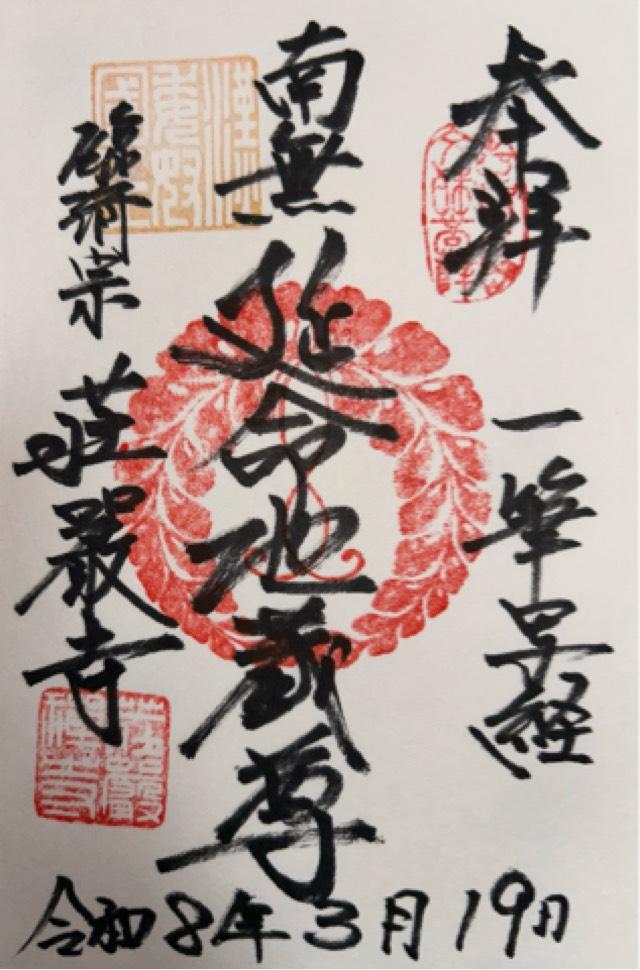 奉拝
一筆写経
南無延命地蔵尊
漢委奴國王
臨済宗
荘嚴寺
令和8年3月19日